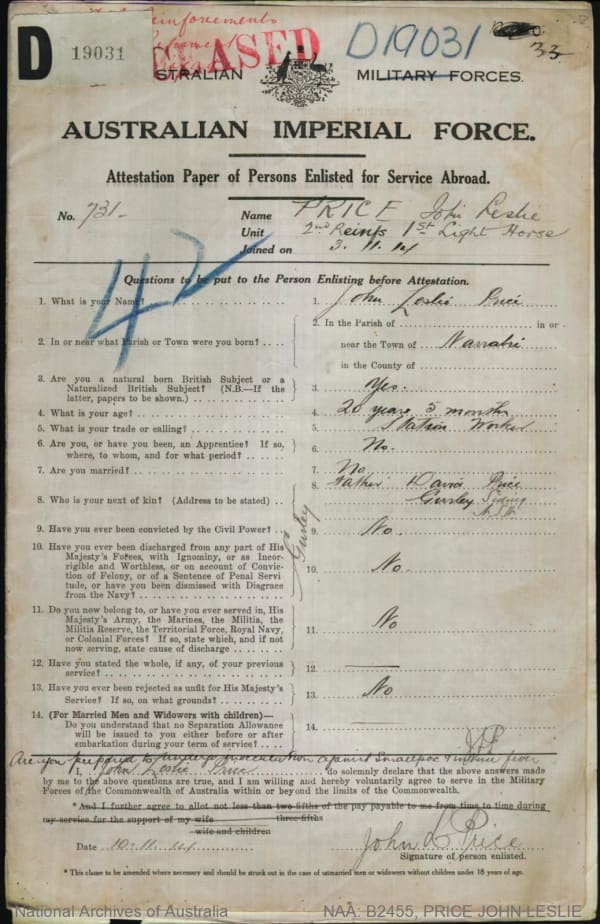 Reinforcements
D 19031
D19031
33
AUSTRALIAN MILITARY FORCES.
AUSTRALIAN IMPERIAL FORCE.
Attestation Paper of Persons Enlisted for Service Abroad.
No. 731- Name PRICE John Leslie
Unit 2nd Reinfs 1st Light Horse
Joined on 3.11.14
42
Questions to be put to the Person Enlisting before Attestation.
1. What is your Name? 1. John Leslie Price
2. In or near what Parish or Town were you born? 2. In the Parish of in or
near the Town of Narrabri
in the County of
3. Are you a natural born British Subject or a
Naturalized British Subject? (N.B.—If the
latter, papers to be shown.) 3. Yes.
4. What is your age? 4. 20 years 5 months
5. What is your trade or calling? 5. Station Worker
6. Are you, or have you been, an Apprentice? If so,
where, to whom, and for what period? 6. No.
7. Are you married? 7. No
8. Who is your next of kin? (Address to be stated) 8. Father David Price
Gurley Siding
N.S.W.
Gurley
9. Have you ever been convicted by the Civil Power? 9. No.
10. Have you ever been discharged from any part of His
Majesty's Forces, with Ignominy, or as Incor-
rigible and Worthless, or on account of Convic-
tion of Felony, or of a Sentence of Penal Servi-
tude, or have you been dismissed with Disgrace
from the Navy? 10. No.
11. Do you now belong to, or have you ever served in, His
Majesty's Army, the Marines, the Militia, the
Militia Reserve, the Territorial Force, Royal Navy,
or Colonial Forces? If so, state which, and if not
now serving, state cause of discharge 11. No
12. Have you stated the whole, if any, of your previous
service? 12.
13. Have you ever been rejected as unfit for His Majesty's
Service? If so, on what grounds? 13. No
14. (For Married Men and Widowers with children)—
Do you understand that no Separation Allowance
will be issued to you either before or after
embarkation during your term of service? 14.
Are you prepared to undergo inoculation against Smallpox & enteric fever
I, John Leslie Price do solemnly declare that the above answers made
by me to the above questions are true, and I am willing and hereby voluntarily agree to serve in the Military
Forces of the Commonwealth of Australia within or beyond the limits of the Commonwealth.
*And I further agree to allot not less than two-fifths of the pay payable to me from time to time during
three-fifths
my service for the support of my wife
wife and children
Date 10.11.14 John L Price
Signature of person enlisted.
* This clause to be amended where necessary and should be struck out in the case of unmarried men or widowers without children under 18 years of age.
National Archives of Australia NAA: B2455, PRICE JOHN LESLIE